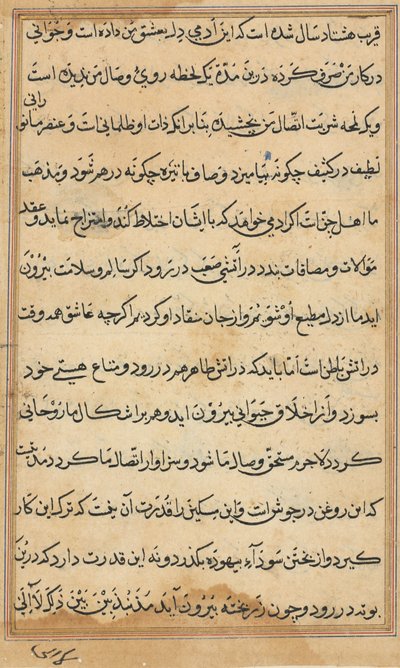 قریب هشتاد سال شده است که این آدمی دل بعشق من داده است و جوانی
در کار من صرف کرده درین مدة یک لحظه روی وصال من ندیده است
و یک لمحه شربت اتصال من نچشیده بنابر آنکه ذات او ظلمانی است و عنصر ما نورانی
لطیف در کثیف چگونه بیامیزد و صاف با تیره چگونه در هم شود و مذهب
ما اهل جنات اگر آدمی خواهد که با ایشان اختلاط کند و امتزاج نماید و عقد
موالات و مصافات بندد در آتشی صعب در رود اگر سالم و سلامت بیرون
آید ما از دل مطیع او شویم و از جان منقاد او گردیم اگر چه عاشق همه وقت
در آتش باطن است اما باید که در آتش ظاهر هم در رود و متاع هستی خود
بسوزد و از اخلاق حیوانی بیرون آید و هر براتب کمال ما روحانی
کردد لاجرم مستحق وصال ما شود و سزاوار اتصال ما کردد مدتیست
که این روغن در جوش است و این مسکین را قدرت آن نیست که ترک این کار
گیرد و از پختن سودآء بیهوده بگذرد و نه این قدرت دارد که درین
بوته در رود و چون زر پخته بیرون آید مذبذبین بین ذلک لا الی